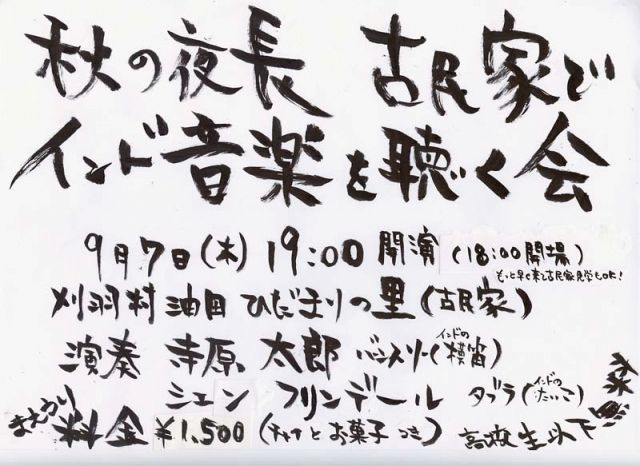 秋の夜長 古民家で
インド音楽を聴く会
9月7日(木) 19:00 開演 (18:00開場)
もっと早く来て古民家見学もOK!
刈羽村油田 ひだまりの里(古民家)
演奏 寺原 太郎 バンスリー(インドの横笛)
シェン フリンデール タブラ(インドのたいこ)
まえうり 料金 ¥1,500 (チャイとお菓子つき) 高校生以下
無料